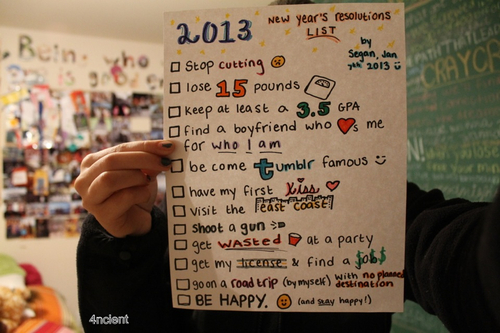 Bein' who
is good
2013
NEW YEAR'S RESOLUTIONS
LIST
by
Segan, Jan
7th 2013
Stop cutting
lose 15 pounds
keep at least a 3.5 GPA
find a boyfriend who ♥s me
for who I am
be come tumblr famous
have my first kiss
visit the east coast
shoot a gun
get WASTED at a party
get my license & find a job
go on a road trip (by myself) with no planned
destination
BE HAPPY. (and stay happy!)
4ncient